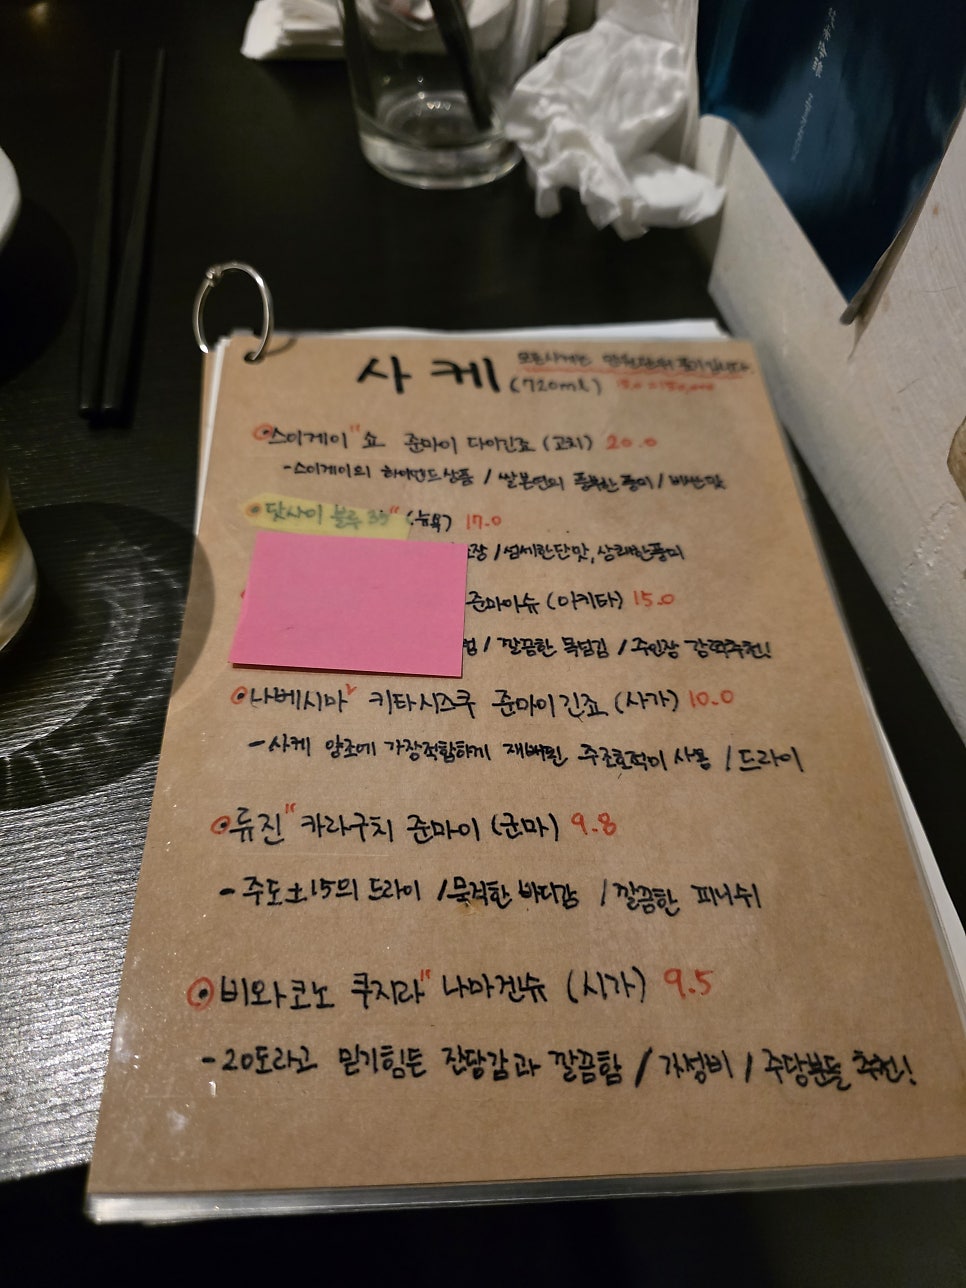 사케 (720ml)
모든 사케는 만원단위 표기입니다.
15.0 = 150,000
스이게이" 쇼 준마이 다이긴죠 (고치) 20.0
-스이게이의 하이엔드상품 / 쌀본연의 풍부한 풍미 /
닷사이 블루 35" (뉴욕) 17.0
/ 섬세한단맛, 상쾌한풍미
준마이슈 (아키타) 15.0
/ 깔끔한 목넘김 / 주인장 강력추천!
나베시마" 키타시즈쿠 준마이긴죠 (사가) 10.0
-사케 양조에 가장적합하게 재배된 주조호적미 사용 / 드라이
류진" 카라구치 준마이 (군마) 9.8
-주도±15의 드라이 / 묵직한 바디감 / 깔끔한 피니쉬
비와코노 쿠지라" 나마겐슈 (시가) 9.5
-20도라고 믿기힘든 진당감과 깔끔함 / 가성비 / 주당분들 추천!